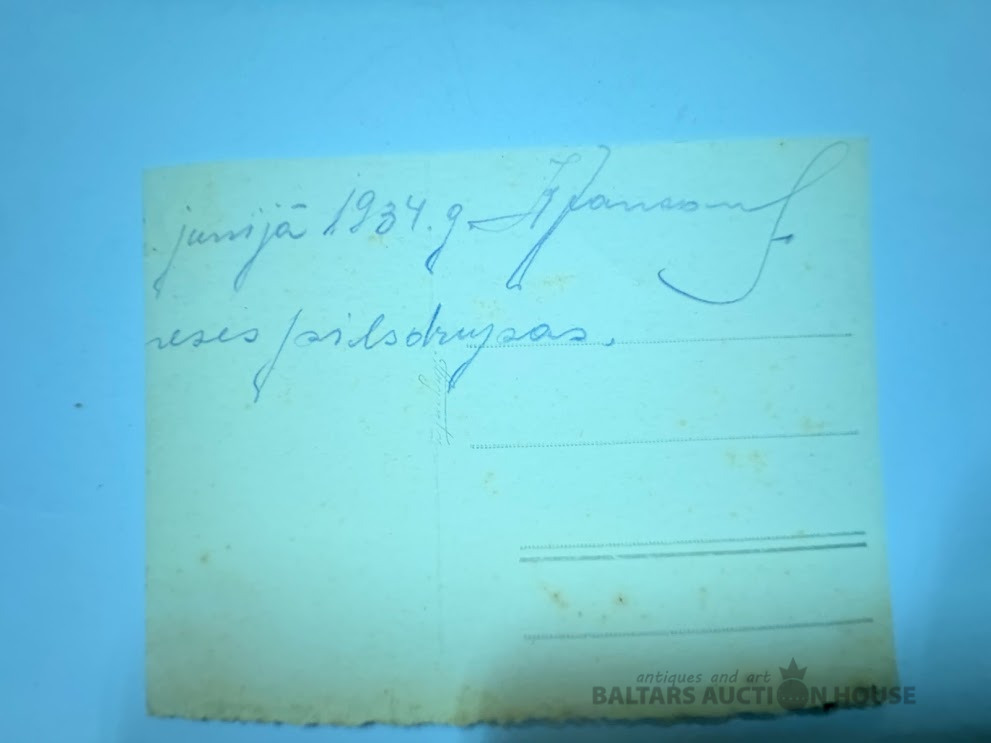 . junijā 1934. g.
reses pilsdrupas.
antiques and art
BALTARS AUCTION HOUSE